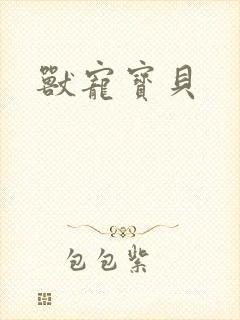 獸寵寶貝
包包紫